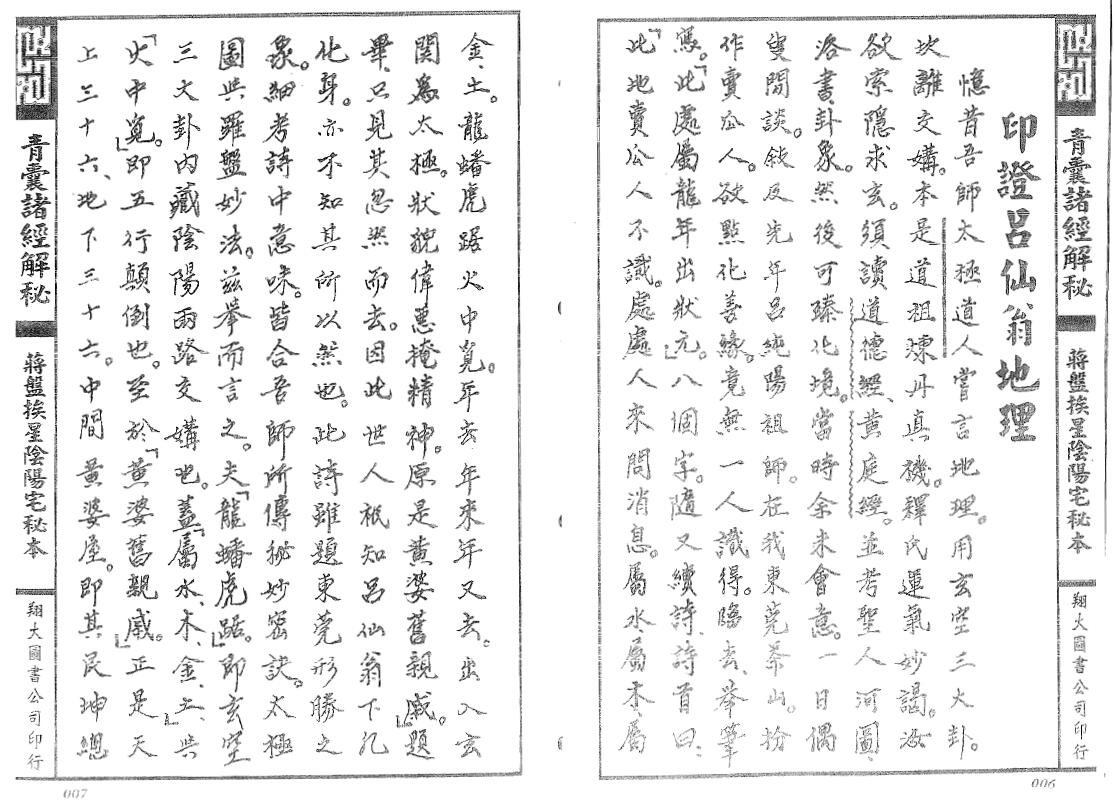 青囊諸經解秘
蔣盤挨星陰陽宅秘本
翔大圖書公司印行
印證呂仙翁地理
憶昔吾師太極道人嘗言地理。用玄空三大卦。
坎離交媾。本是道祖煉丹真機。釋氏運氣妙謁。汝
欲索隱求玄。須讀道德經、黃庭經。並考聖人河圖、
洛書、卦象。然後可臻化境。當時余未會意。一日偶
與閒談。敘及先年呂純陽祖師。在我東莞茶山。扮
作賣瓜人。欲點化善緣。竟無一人識得。臨去、舉筆
憑。「此處屬龍年出狀元。」八個字。隨又續詩、詩首曰、
「此地賣瓜人不識。處處人來問消息。屬水、屬木、屬
006
金、土。龍蟠虎踞火中覓。年去年來年又去。出入玄
関為太極。狀貌偉惡掩精神。原是黃婆舊親戚。」題
畢、只見其忽然而去。因此世人祇知呂仙翁下凡
化身。亦不知其所以然也。此詩雖題東莞形勝之
象。細考詩中意味。皆合吾師所傳秘妙密訣。太極
圖與羅盤妙法。茲舉而言之。夫「龍蟠虎踞。」即玄空
三大卦內藏陰陽兩路交媾也。蓋「屬水、木、金、土、」與
「火中覓。」即五行顛倒也。至於「黃婆舊親戚。」正是天
上三十六、地下三十六。中間黃婆屋。即其民坤總
青囊諸經解秘
蔣盤挨星陰陽宅秘本
翔大圖書公司印行
007